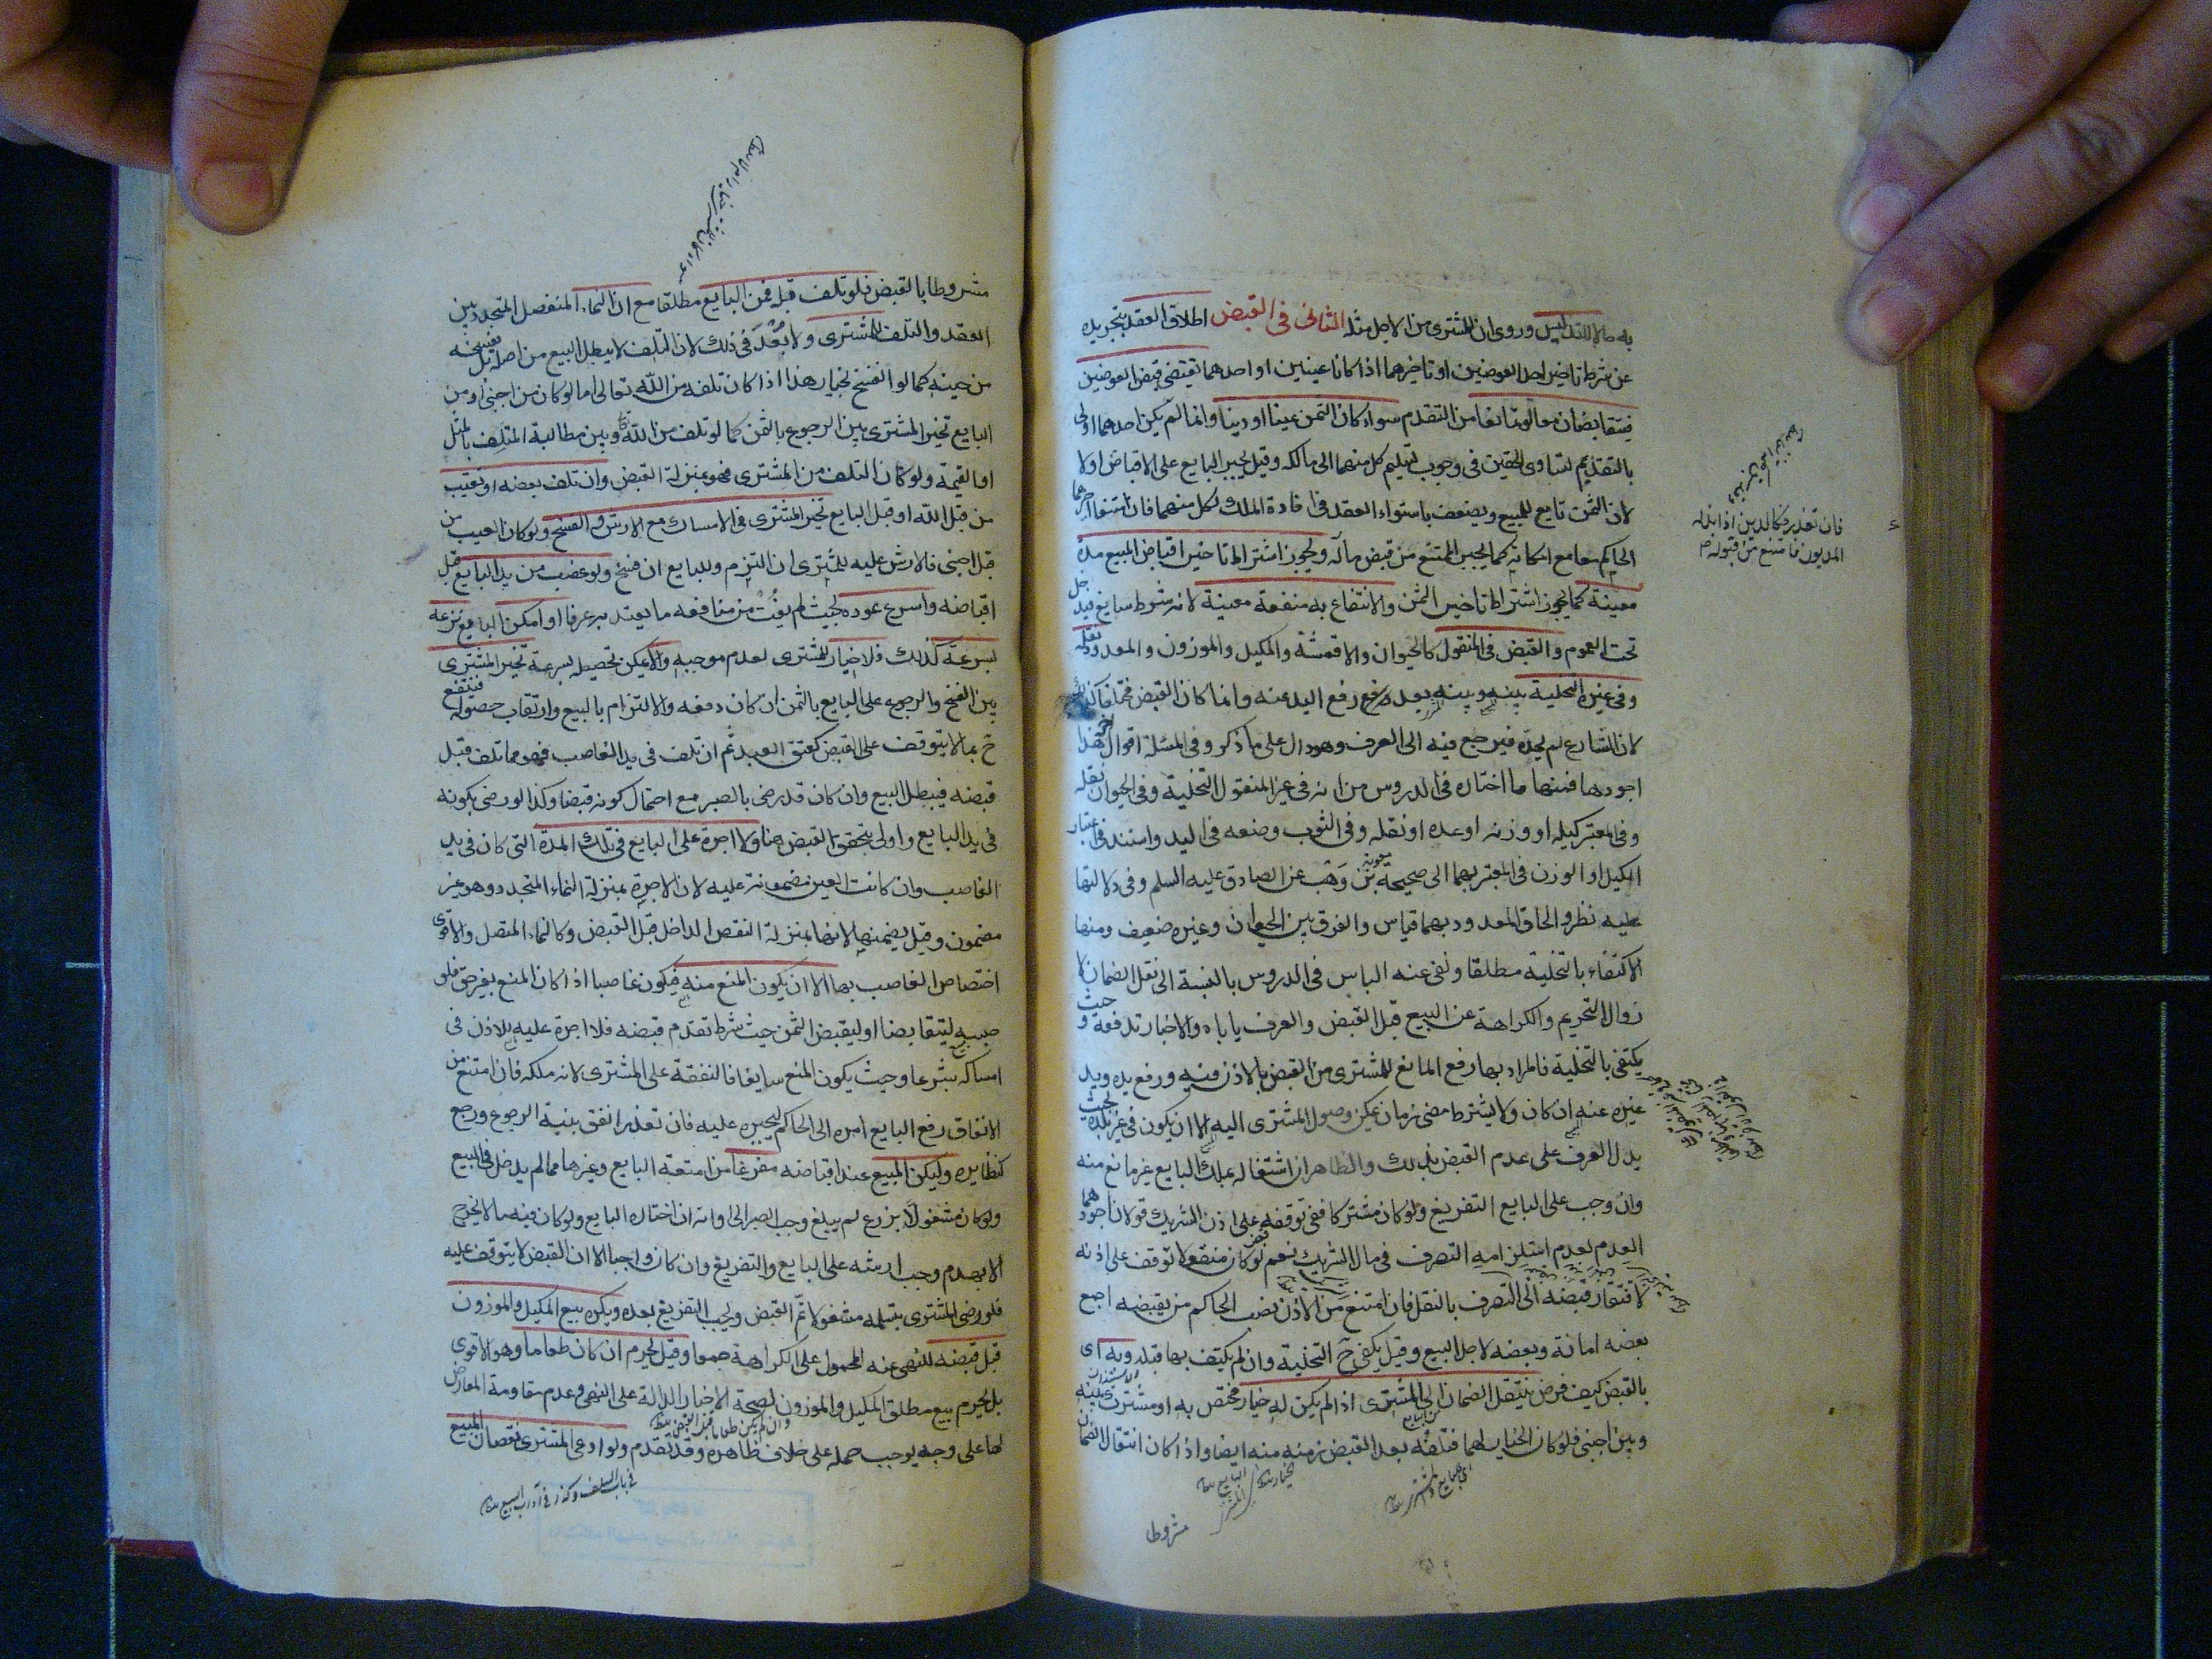 به حالا للتدليس وروى ان للمشترى من الاجل مثله الثانى فى القبض اطلاق العقد بتجريده
عن شرط تاخير احد العوضين او تاخيرهما اذا كانا عينين او احدهما يقتضى قبض العوضين
فيتقابضان معا لو تمانعا من التقدم سواء كان الثمن عينا او دينا وانما لم يكن احدهما اولى
بالتقديم لتساوى الحقين فى وجوب تسليم كل منهما الى مالكه وقيل يجبر البايع على الاقباض اولا
لان الثمن تابع للمبيع ويضعف باستواء العقد فى افادة الملك لكل منهما فان امتنعا اجبرهما
الحاكم معا مع امكانه كما يجبر الممتنع من قبض ماله ويجوز اشتراط تاخير اقباض المبيع مدة
معينة كما يجوز اشتراط تاخير الثمن والانتفاع به منفعة معينة لانه شرط سايغ فيدخل
تحت العموم والقبض فى المنقول كالحيوان والاقمشة والمكيل والموزون والمعدود نقله
وفى غيره التخلية بينه وبينه بعد رفع اليد عنه وانما كان القبض مختلفا كذلك
لان الشارع لم يحده فيرجع فيه الى العرف وهو دال على ما ذكر وفى المسئلة اقوال اخر هذا
اجودها فمنها ما اختاره فى الدروس من انه فى غير المنقول التخلية وفى الحيوان نقله
وفى المعتبر كيله او وزنه او عده او نقله وفى الثوب وضعه فى اليد واستند فى اعتبار
الكيل او الوزن فى المعتبر بهما الى صحيحة معوية بن وهب عن الصادق عليه السلم وفى دلالتها
عليه نظر والحاق المعدود بهما قياس والفرق بين الحيوان وغيره ضعيف ومنها
الاكتفاء بالتخلية مطلقا ونفى عنه الباس فى الدروس بالنسبة الى نقل الضمان لا
زوال التحريم والكراهة عن البيع قبل القبض والعرف ياباه والاخبار تدفعه وحيث
يكتفى بالتخلية فالمراد بها رفع المانع للمشترى من القبض بالاذن فيه ورفع يده ويد
غيره عنه ان كان ولا يشترط مضى زمان يمكن وصول المشترى اليه الا ان يكون فى غير بلده بحيث
يدل العرف على عدم القبض بذلك والظاهر ان اشتغاله بملك البايع غير مانع منه
وان وجب على البايع التفريغ ولو كان مشتركا ففى توقفه على اذن الشريك قولان اجودهما
العدم لعدم استلزامه التصرف فى مال الشريك نعم لو كان منقولا توقف على اذنه
لافتقار قبضه الى التصرف بالنقل فان امتنع من الاذن نصب الحاكم من يقبضه اجمع
بعضه امانة وبعضه لاجل البيع وقيل يكفى ح التخلية وان لم يكتف بها قبله وبه اى
بالقبض كيف فرض ينتقل الضمان الى المشترى اذا لم يكن له خيار مختص به او مشترك بينه
وبين اجنبى فلو كان الخيار لهما فتلفه بعد القبض زمنه منه ايضا واذا كان انتقال الضمان
مشروطا
فان تعذر فكالدين اذا بذله
المديون فامتنع من قبوله
مشروطا بالقبض فلو تلف قبله فمن البايع مطلقا مع ان النماء المنفصل المتجدد بين
العقد والتلف للمشترى ولا بعد فى ذلك لان التلف لا يبطل البيع من اصله بل يفسخه
من حينه كما لو انفسخ بخيار هذا اذا كان تلفه من الله تعالى اما لو كان من اجنبى او من
البايع تخير المشترى بين الرجوع بالثمن كما لو تلف من الله وبين مطالبة المتلف بالمثل
او القيمة ولو كان التلف من المشترى فهو بمنزلة القبض وان تلف بعضه او تعيب
من قبل الله او قبل البايع تخير المشترى فى الامساك مع الارش والفسخ ولو كان العيب من
قبل اجنبى فالارش عليه للمشترى ان التزم وللبايع ان فسخ ولو غصب من يد البايع قبل
اقباضه واسرع عوده بحيث لم يفت من منافعه ما يعتد به عرفا او امكن البايع نزعه
بسرعة كذلك فلا خيار للمشترى لعدم موجبه والا يمكن تحصيله بسرعة تخير المشترى
بين الفسخ والرجوع على البايع بالثمن ان كان دفعه والالتزام بالمبيع وارتقاب حصوله فينتفع
ح بما لا يتوقف على القبض كعتق العبد ثم ان تلف فى يد الغاصب فهو مما تلف قبل
قبضه فيبطل البيع وان كان قد رضى بالصبر مع احتمال كونه قبضا وكذا لو رضى بكونه
فى يد البايع واولى بتحقق القبض هنا ولا اجرة على البايع فى تلك المدة التى كان فى يد
الغاصب وان كانت العين مضمونة عليه لان الاجرة بمنزلة النماء المتجدد وهو غير
مضمون وقيل يضمنها لانها بمنزلة النقص الداخل قبل القبض وكالنماء المتصل والاقوى
اختصاص الغاصب بها الا ان يكون المنع منه فيكون غاصبا اذا كان المنع بغير حق فلو
حبسه ليتقابضا او ليقبض الثمن حيث شرط تقدم قبضه فلا اجرة عليه للاذن فى
امساكه شرعا وحيث يكون المنع سايغا فالنفقة على المشترى لانه ملكه فان امتنع من
الانفاق رفع البايع امره الى الحاكم ليجبره عليه فان تعذر انفق بنية الرجوع ورجع
كنظايره وليكن المبيع عند اقباضه مفرغا من امتعة البايع وغيرها مما لم يدخل فى المبيع
ولو كان مشغولا بزرع لم يبلغ وجب الصبر الى اوانه ان اختاره البايع ولو كان فيه ما لا يخرج
الا بهدم وجب ارشه على البايع والتفريغ وان كان واجبا الا ان القبض لا يتوقف عليه
فلو رضى المشترى بتسلمه مشغولا تم القبض ويجب التفريغ بعده ويكره بيع المكيل والموزون
قبل قبضه للنهى عنه المحمول على الكراهة جمعا وقيل يحرم ان كان طعاما وهو الاقوى
بل يحرم بيع مطلق المكيل والموزون لصحة الاخبار الدالة على النهى وعدم مقاومة المعارض
لها على وجه يوجب حمله على خلاف ظاهره وقد تقدم ولو ادعى المشترى نقصان المبيع